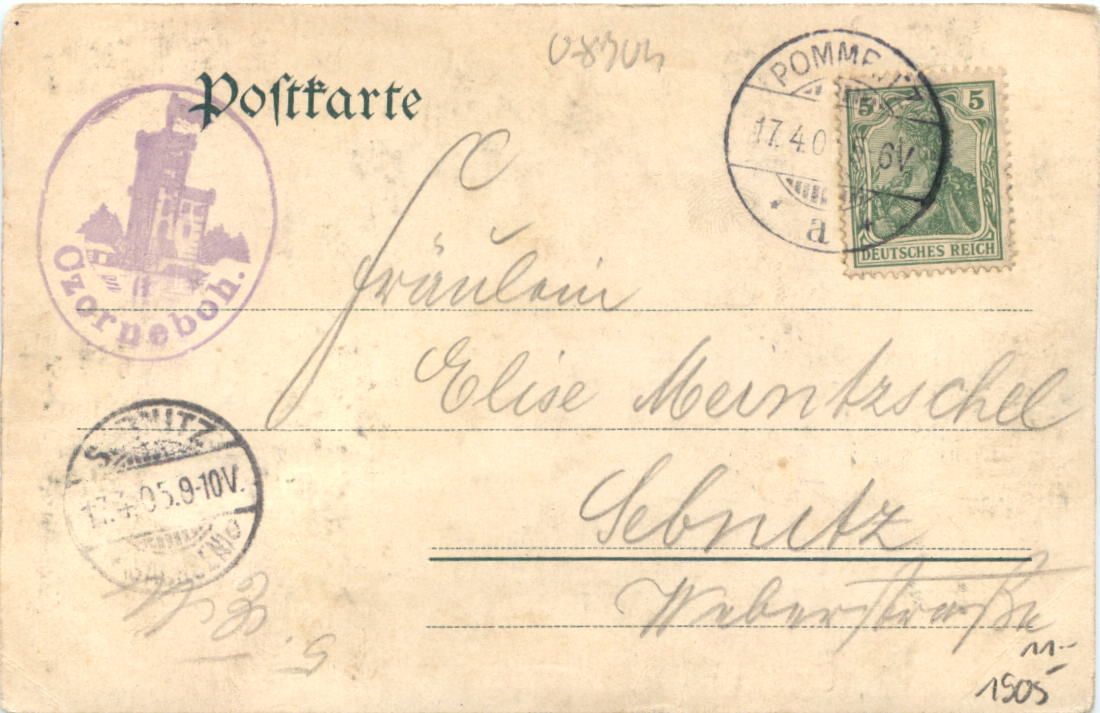 08304
Postkarte
Czorneboh.
POMMRITZ
17.4.0 6V.
* a *
5 5
DEUTSCHES REICH
Fräulein
Elise Merntzschel
Sebnitz
Weberstraße
SEBNITZ
17.4.05.9-10V.
(SACHSEN)
11-
1905